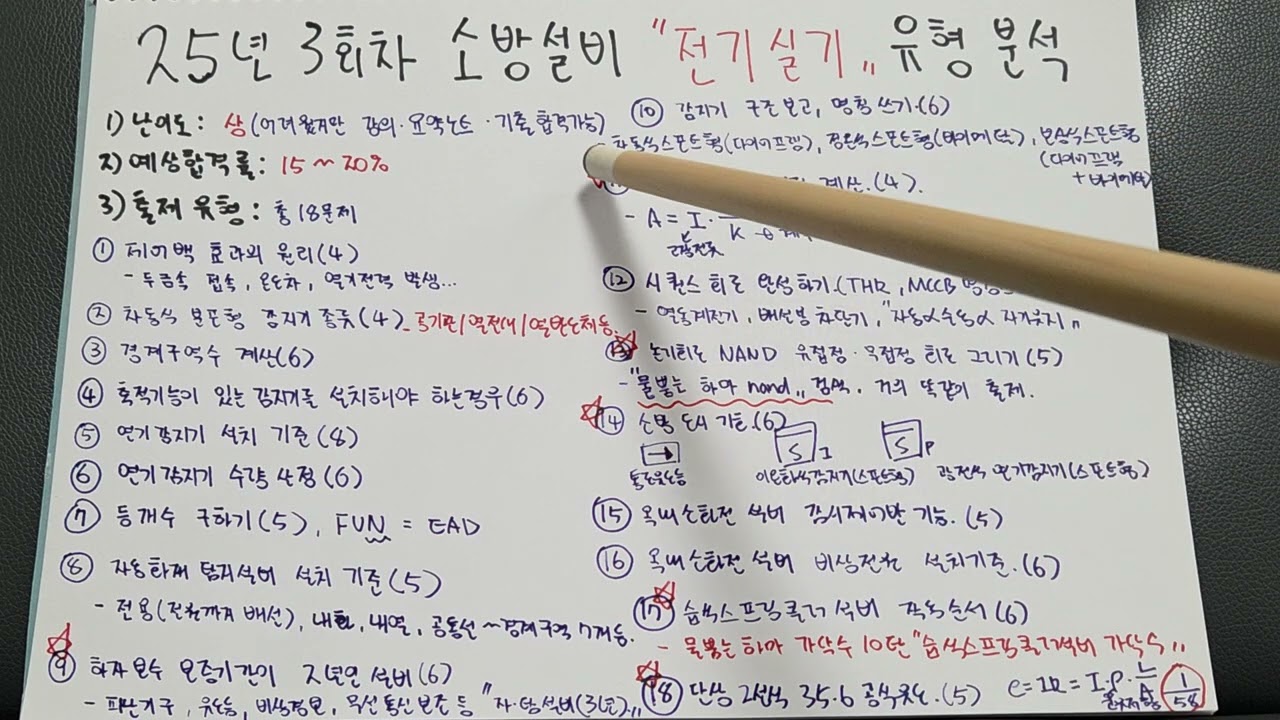 25년 3회차 소방설비 "전기실기" 유형 분석
1) 난이도: 상(어려웠지만 강의·요약노트·기출 합격가능)
2) 예상합격률: 15~20%
3) 출제 유형: 총 18문제
① 제어백 효과의 원리(4)
- 두금속 접속, 온도차, 열기전력 발생...
② 차동식 분포형 감지기 종류(4) - 공기관/열전대/열반도체 등.
③ 경계구역수 계산(6)
④ 축적기능이 있는 감지기를 설치해야 하는경우(6)
⑤ 연기감지기 설치 기준(8)
⑥ 연기감지기 수량 산정(6)
⑦ 등개수 구하기(5), FUN = EAD
⑧ 자동화재 탐지설비 설치 기준(5)
- 전용(전원까지 배선), 내화, 내열, 공통선~경계구역 7개등.
⑨ 하자보수 보증기간이 2년인 설비(6)
- 피난기구, 유도등, 비상경보, 무선통신보조 등 "자·탐설비(3년)"
⑩ 감지기 구조보고, 명칭 쓰기(6)
차동식스포트형(다이어프램), 정온식스포트형(바이메탈), 보상식스포트형
(다이어프램
+바이메탈)
계산.(4).
- A = I · K
⑫ 시퀀스 회로 완성하기.(THR, MCCB
- 열동계전기, 배선용 차단기, "자동α수동α 자기유지"
⑬ 논리회로 NAND 유접점·무접점 회로 그리기(5)
- "물뿜는 하마 nand" 검색. 거의 똑같이 출제.
⑭ 소방 도시 기호.(6)
S I
S P
통로유도등 이온화식감지기(스포트형) 광전식 연기감지기(스포트형)
⑮ 옥내소화전 설비 감시제어반 기능.(5)
⑯ 옥내소화전 설비 비상전원 설치기준.(6)
⑰ 습식스프링클러 설비 작동순서(6)
- 물뿜는하마 가닥수 10탄 "습식스프링클러설비 가닥수"
⑱ 단상 2선식 35.6 공식유도.(5) e=IR = I·ρ·L/A
1/58